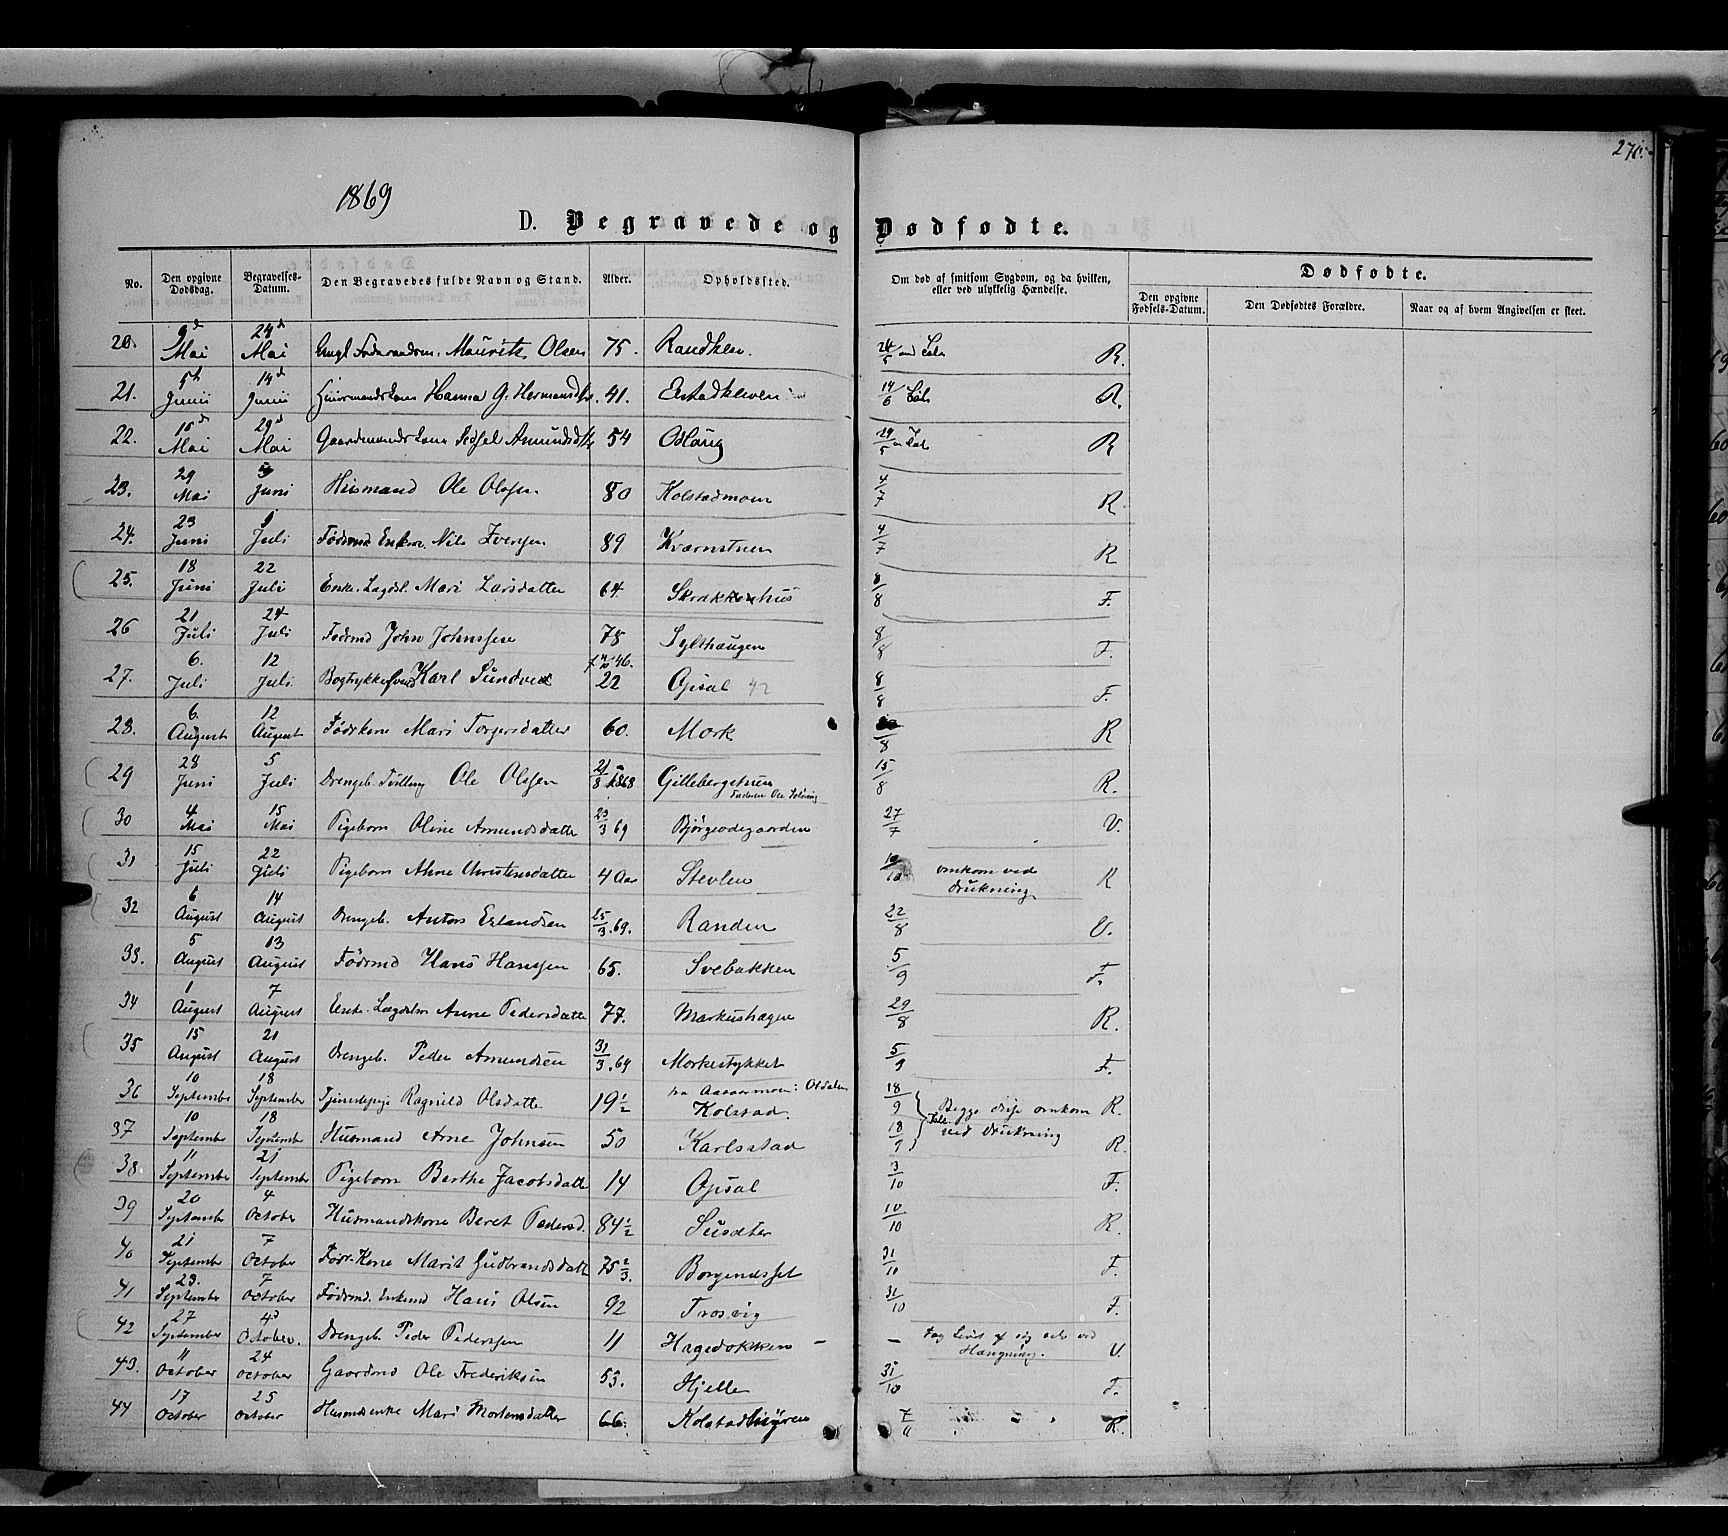 270.
1869
D. Begravede og Dødfødte.
No. Den opgivne Dødsdag. Begravelses-Datum. Den Begravedes fulde Navn og Stand. Alder. Opholdssted. Om død af smitsom Sygdom, og da hvilken, eller ved ulykkelig Hændelse. Dødfødte.
Den opgivne Fødsels-Datum. Den Dødfødtes Forældre. Naar og af hvem Angivelsen er skeet.
20. 9d Mai 24d Mai Mauritz Olsen 75. Randklev 24/5 R.
21. 5te Junii 14d Junii Hanna G. Hermansd 41. 14/6 R.
22. 16d Mai 29d Mai Gaardmands Kone Sidsel Amundsdtr 54 Odlaug 29/5 R
23. 29 Mai Juni Husmand Ole Olsen 80 Kolstadmoen 4/7 R.
24. 23 Juni Juli Fødsmd Enkem. Nils Iversen 89 Kværnstuen 4/7 R
25. 18 Juni 22 Juli Enke. Lægdsl. Mari Larsdatter 64. Skrakkenhus 8/8 F.
26 21 Juli 24 Juli Fødsmd John Johnssen 78 Sylthaugen 8/8 F.
27. 6. Juli 12 Juli. Karl Sundve 22 Opsal 42 8/8 F.
28. 6. August 12 August Fødskone Mari Torgersdatter 60. Mork /8 R
29 28 Juni 5 Juli Drengeb. Tvilling Ole Olssen 21/8 1868 Gillebergstuen 15/8 R.
30 4 Mai 15 Mai Pigebarn Oline Amundsdatte 23/3 69 Bjørgeødegaarden 27/7 V.
31 15 Juli 22 Juli Pigebarn Anne Christensdatter 4 Aar Stevlen 10/10 omkom ved Drukning R
32 6 August 14 August Drengeb. Anton Erlandsen 25/3.69. Randen 22/8 V.
33. 5 August 13 August Fødsmd Hans Hanssen 65. Svebakken 5/9 F.
34 1 August 7 August Enke. Lægdslem Anne Pedersdatte 77. Markushagen 29/8 R.
35 15 August 21 August Drengeb. Peder Amundsen 31/3.69 Morkestykket 5/9 F.
36 10 September 18 September Tjenestepige Ragnild Olsdatte 19½ Kolstad. 18/9 Begge disse omkom R.
37 10 September 18 September Husmand Arne Johnsen 50 Karlsstad 18/9 ved Drukning R.
38. 11 September 21 September Pigebarn Berthe Jacobsdatte 14 Opsal 3/10 F.
39 20 September 4 October Husmandskone Beret Pedersd. 84½ Susæter 10/10 R.
40 21 September 7 October Føds-Kone Marit Gudbrandsdatt 75 2/3. Borgendsset 31/10 F.
41 23. September 7 October Fødsmd. Enkemd Hans Olsen 92 Trosvig 31/10 F.
42 27 September 4d October. Drengeb. Peder Pederssen 11 Hagedokken – – tog Livet af sig selv ved Hængning. V.
43. 11 October 24 October Gaardmd Ole Frederiksen 53. Hjelle 31/10 F.
44 17 October 25 October Husmdsenke Mari Mortensdatter 66. Kolstadmyren 7/11 " " " R.